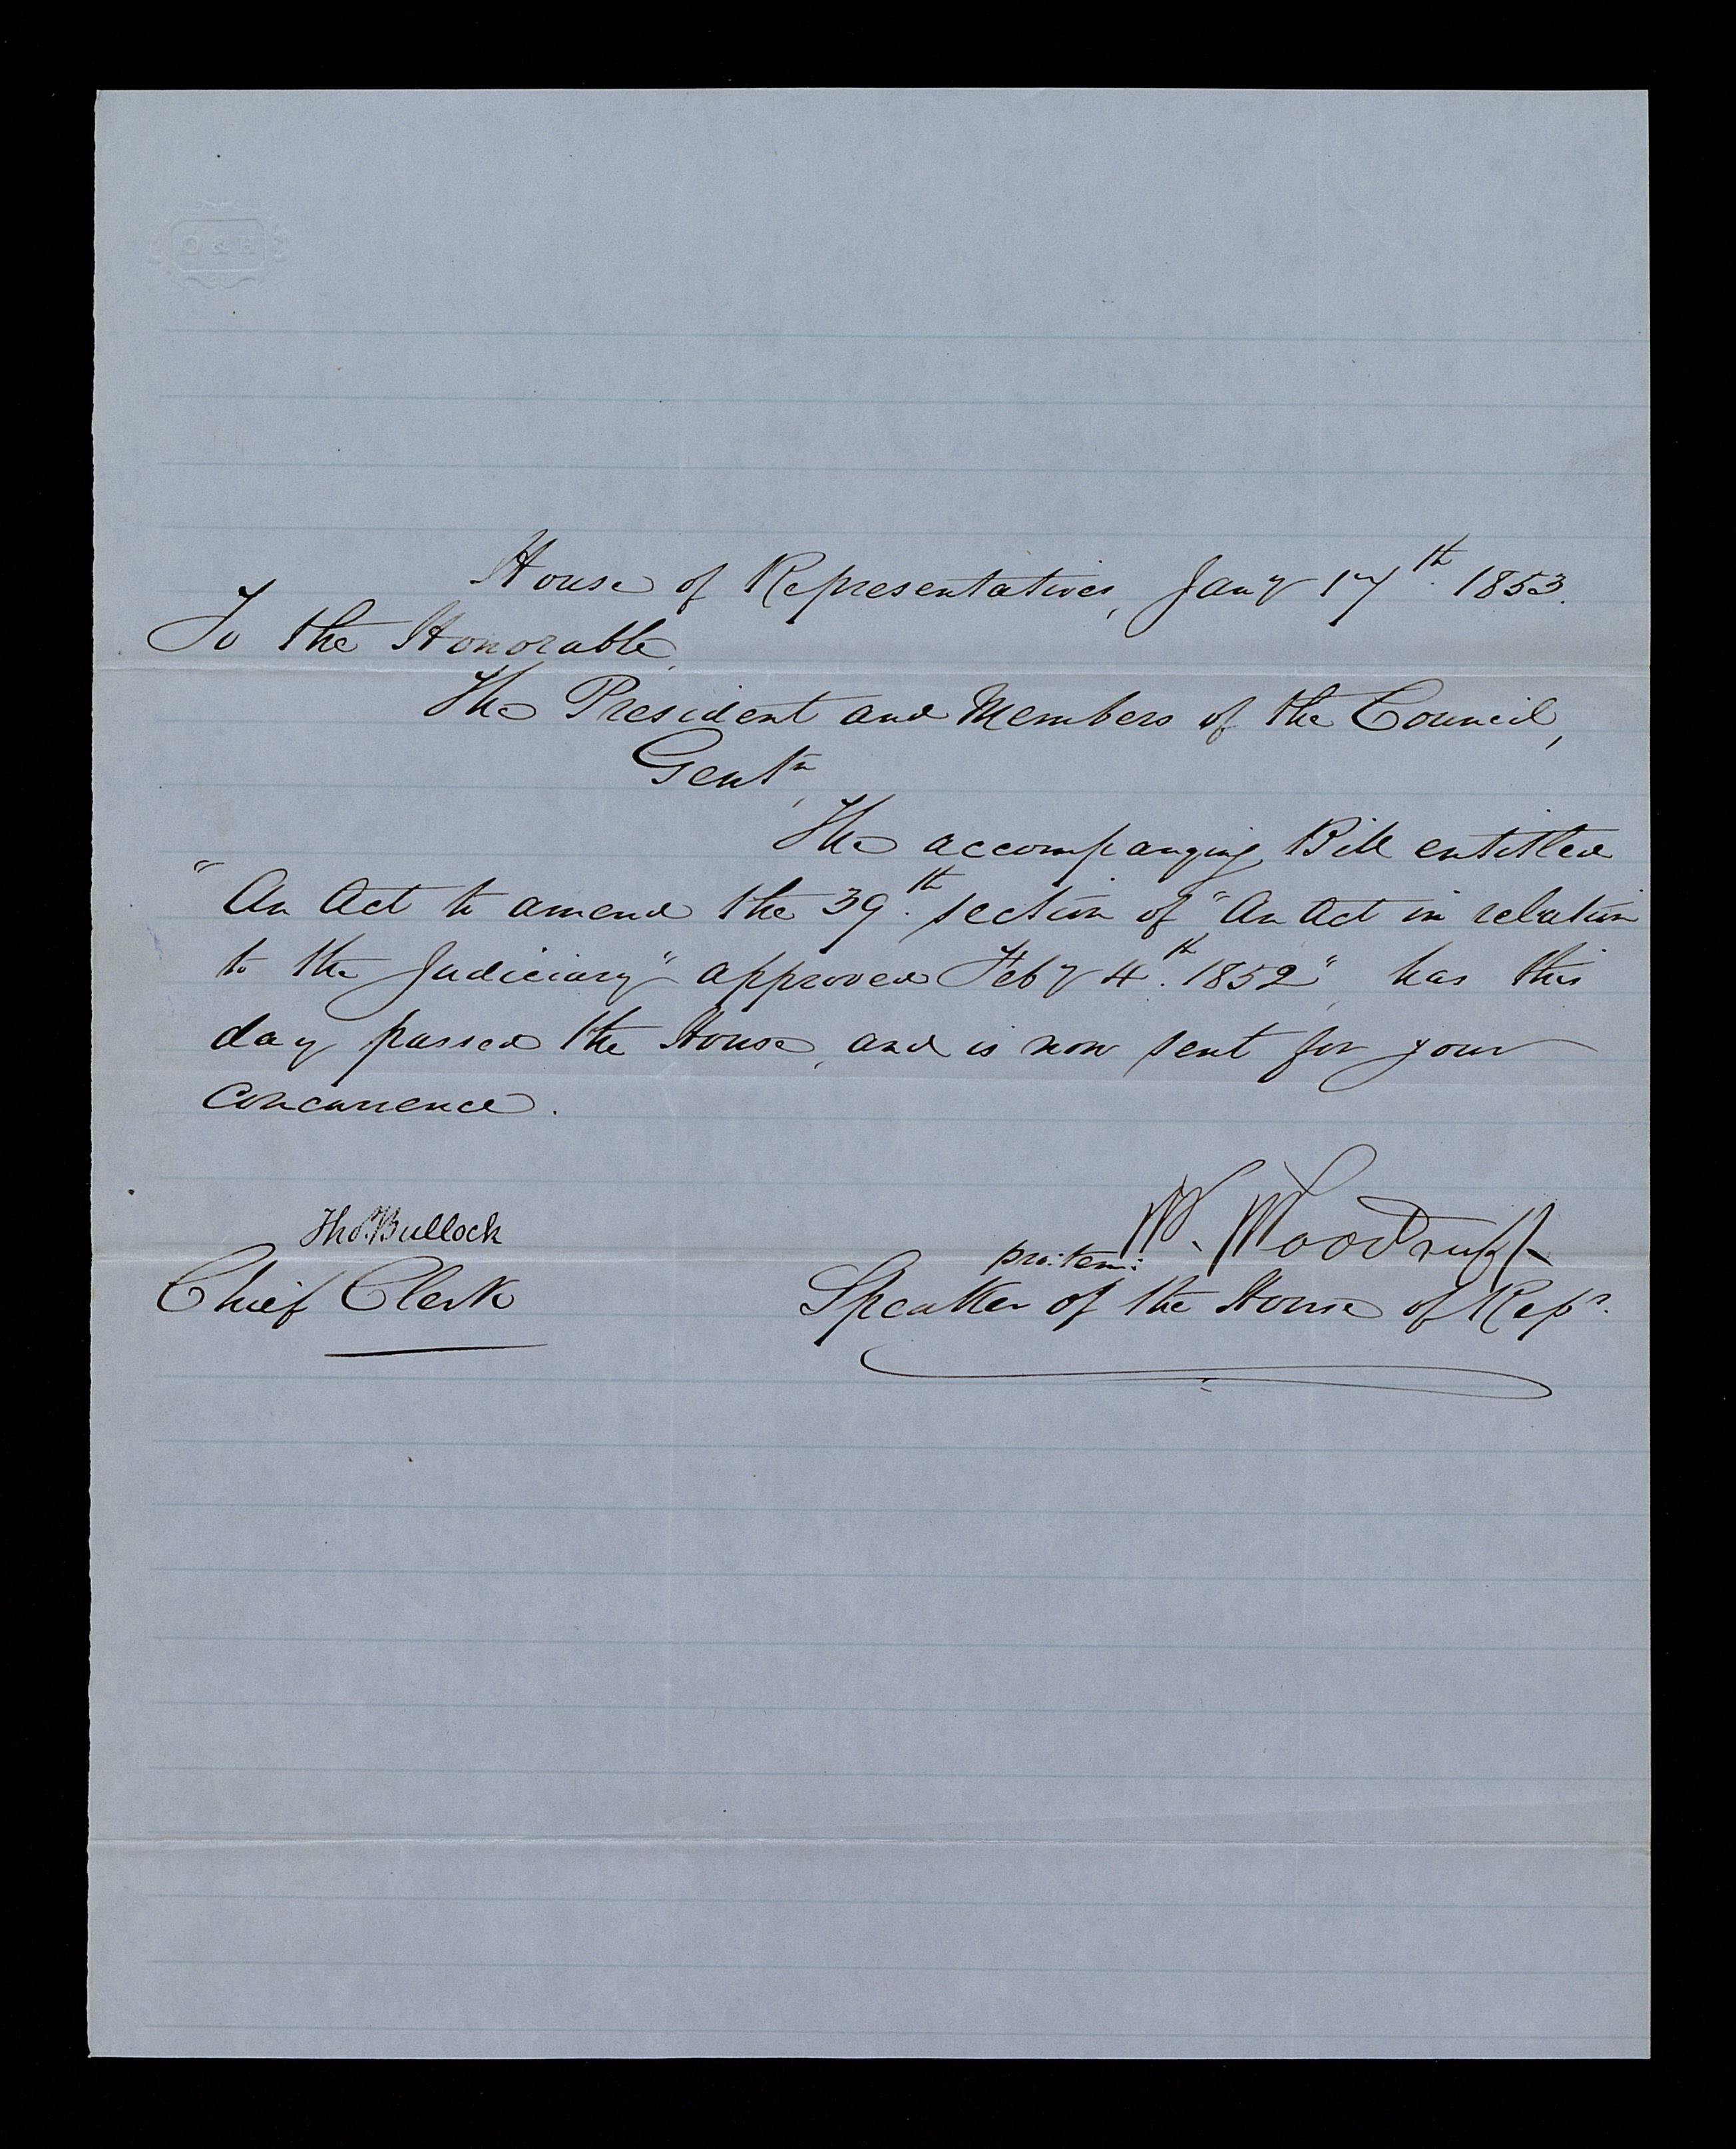 O & H
House of Representatives, Jany 17th. 1853.
To the Honorable,
The President and Members of the Council,
Gentn,
The accompanying Bill entitled
"An Act to amend the 39th. section of "An Act in relation
to the Judiciary" approved Feby 4th. 1852", has this
day passed the House, and is now sent for your
concurrence.
Thos. Bullock
W. Woodruff
pro: tem:
Chief Clerk
Speaker of the House of Reps.